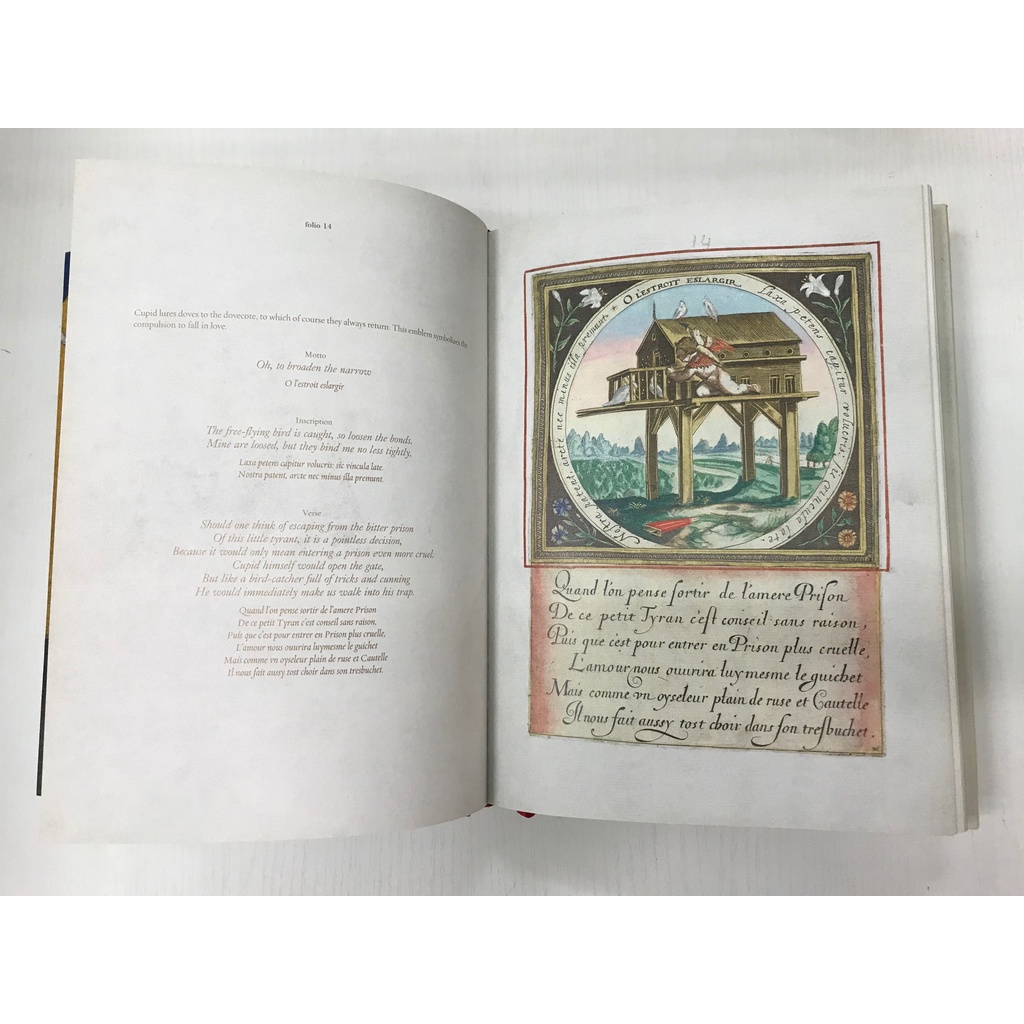 folio 14
Cupid lures doves to the dovecote, to which of course they always return. This emblem symbolizes the
compulsion to fall in love.
Motto
Oh, to broaden the narrow
O l'estroit eslargir
Inscription
The free-flying bird is caught, so loosen the bonds.
Mine are loosed, but they bind me no less tightly.
Laxa petens capitur volucris: sic vincula late.
Nostra patent, arcte nec minus illa premunt.
Verse
Should one think of escaping from the bitter prison
Of this little tyrant, it is a pointless decision,
Because it would only mean entering a prison even more cruel.
Cupid himself would open the gate,
But like a bird-catcher full of tricks and cunning
He would immediately make us walk into his trap.
Quand l'on pense sortir de l'amere Prison
De ce petit Tyran c'est conseil sans raison,
Puis que c'est pour entrer en Prison plus cruelle,
L'amour nous ouurira luymesme le guichet
Mais comme vn oyseleur plain de ruse et Cautelle
Il nous fait aussy tost choir dans son tresbuchet.
14
O LESTROIT ESLARGIR
Laxa petens capitur volucris: sic vincula late.
Nostra patent, arcte nec minus illa premunt.
Quand l'on pense sortir de l'amere Prison
De ce petit Tyran c'est conseil sans raison,
Puis que c'est pour entrer en Prison plus cruelle,
L'amour nous ouurira luy mesme le guichet
Mais comme vn oyseleur plain de ruse et Cautelle
Il nous fait aussy tost choir dans son tresbuchet.